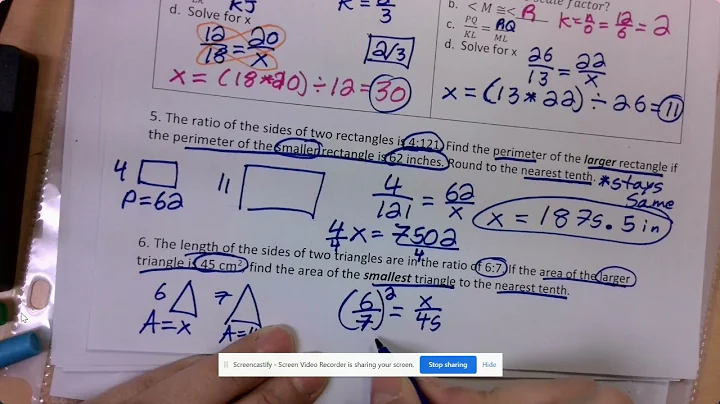 KJ
K =
3
d. Solve for x
12/18 = 20/x
2/3
x = (18*20) ÷ 12 = 30
factor?
b. < M ≅ < R
K = 12/6 = 2
c. PQ/KL = RQ/ML
d. Solve for x
26/13 = 22/x
x = (13 * 22) ÷ 26 = 11
5. The ratio of the sides of two rectangles is 4:121. Find the perimeter of the larger rectangle if
the perimeter of the smaller rectangle is 62 inches. Round to the nearest tenth.
*stays
same
4
P=62
11
4/121 = 62/x
x = 1875.5 in
4/4 x = 7502/4
6. The length of the sides of two triangles are in the ratio of 6:7. If the area of the larger
triangle is 45 cm², find the area of the smallest triangle to the nearest tenth.
6
A=x
7
A=4
(6/7)² = x/45
Screencastify - Screen Video Recorder is sharing your screen.
Stop sharing
Hide